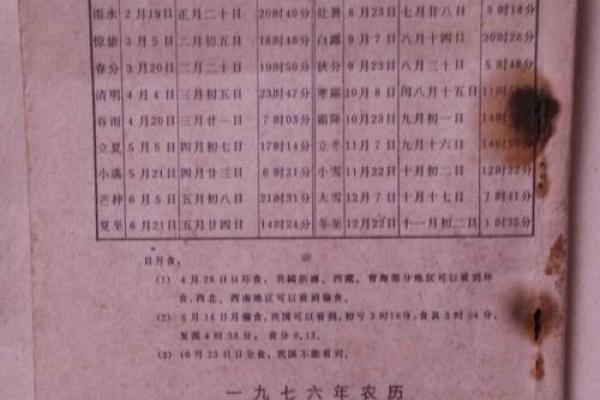 雨水 2月19日 正月二十日 20时40分 处暑 8月23日 七月廿八日 8时18分
惊蛰 3月5日 二月初五日 18时48分 白露 9月7日 八月十四日 20时28分
春分 3月20日 二月二十日 19时50分 秋分 9月23日 八月三十日 5时48分
清明 4月4日 三月初五日 23时47分 寒露 10月8日 闰八月十五日 11时
谷雨 4月20日 三月廿一日 7时03分 霜降 10月23日 九月初一日 14时
立夏 5月5日 四月初七日 17时14分 立冬 11月7日 九月十六日 14时
小满 5月21日 四月廿三日 6时21分 小雪 11月22日 十月初二日 12时22分
芒种 6月5日 五月初八日 21时31分 大雪 12月7日 十月十七日 7时41分
夏至 6月21日 五月廿四日 14时24分 冬至 12月22日 十一月初二日 1时35分
日月食。
(1) 4月29日日环食。我国新疆、西藏、青海部分地区可以看到环
食,西北、西南地区可以看到偏食。
(2) 5月14日月偏食,我国可以看到,初亏3时16分,食甚3时54分,
复圆4时33分。食分0.13。
(3) 10月23日日全食。我国不能看到。
一九七六年农历